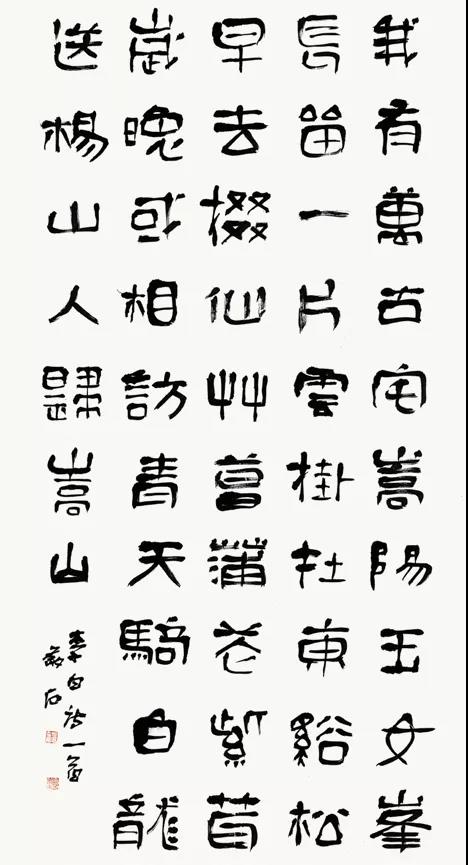 我有萬古宅嵩陽玉女峯
長留一片雲掛在東谿松
早去掇仙艸菖蒲花紫茸
歲晚或相訪青天騎白龍
送楊山人歸嵩山
李白詩一首
石